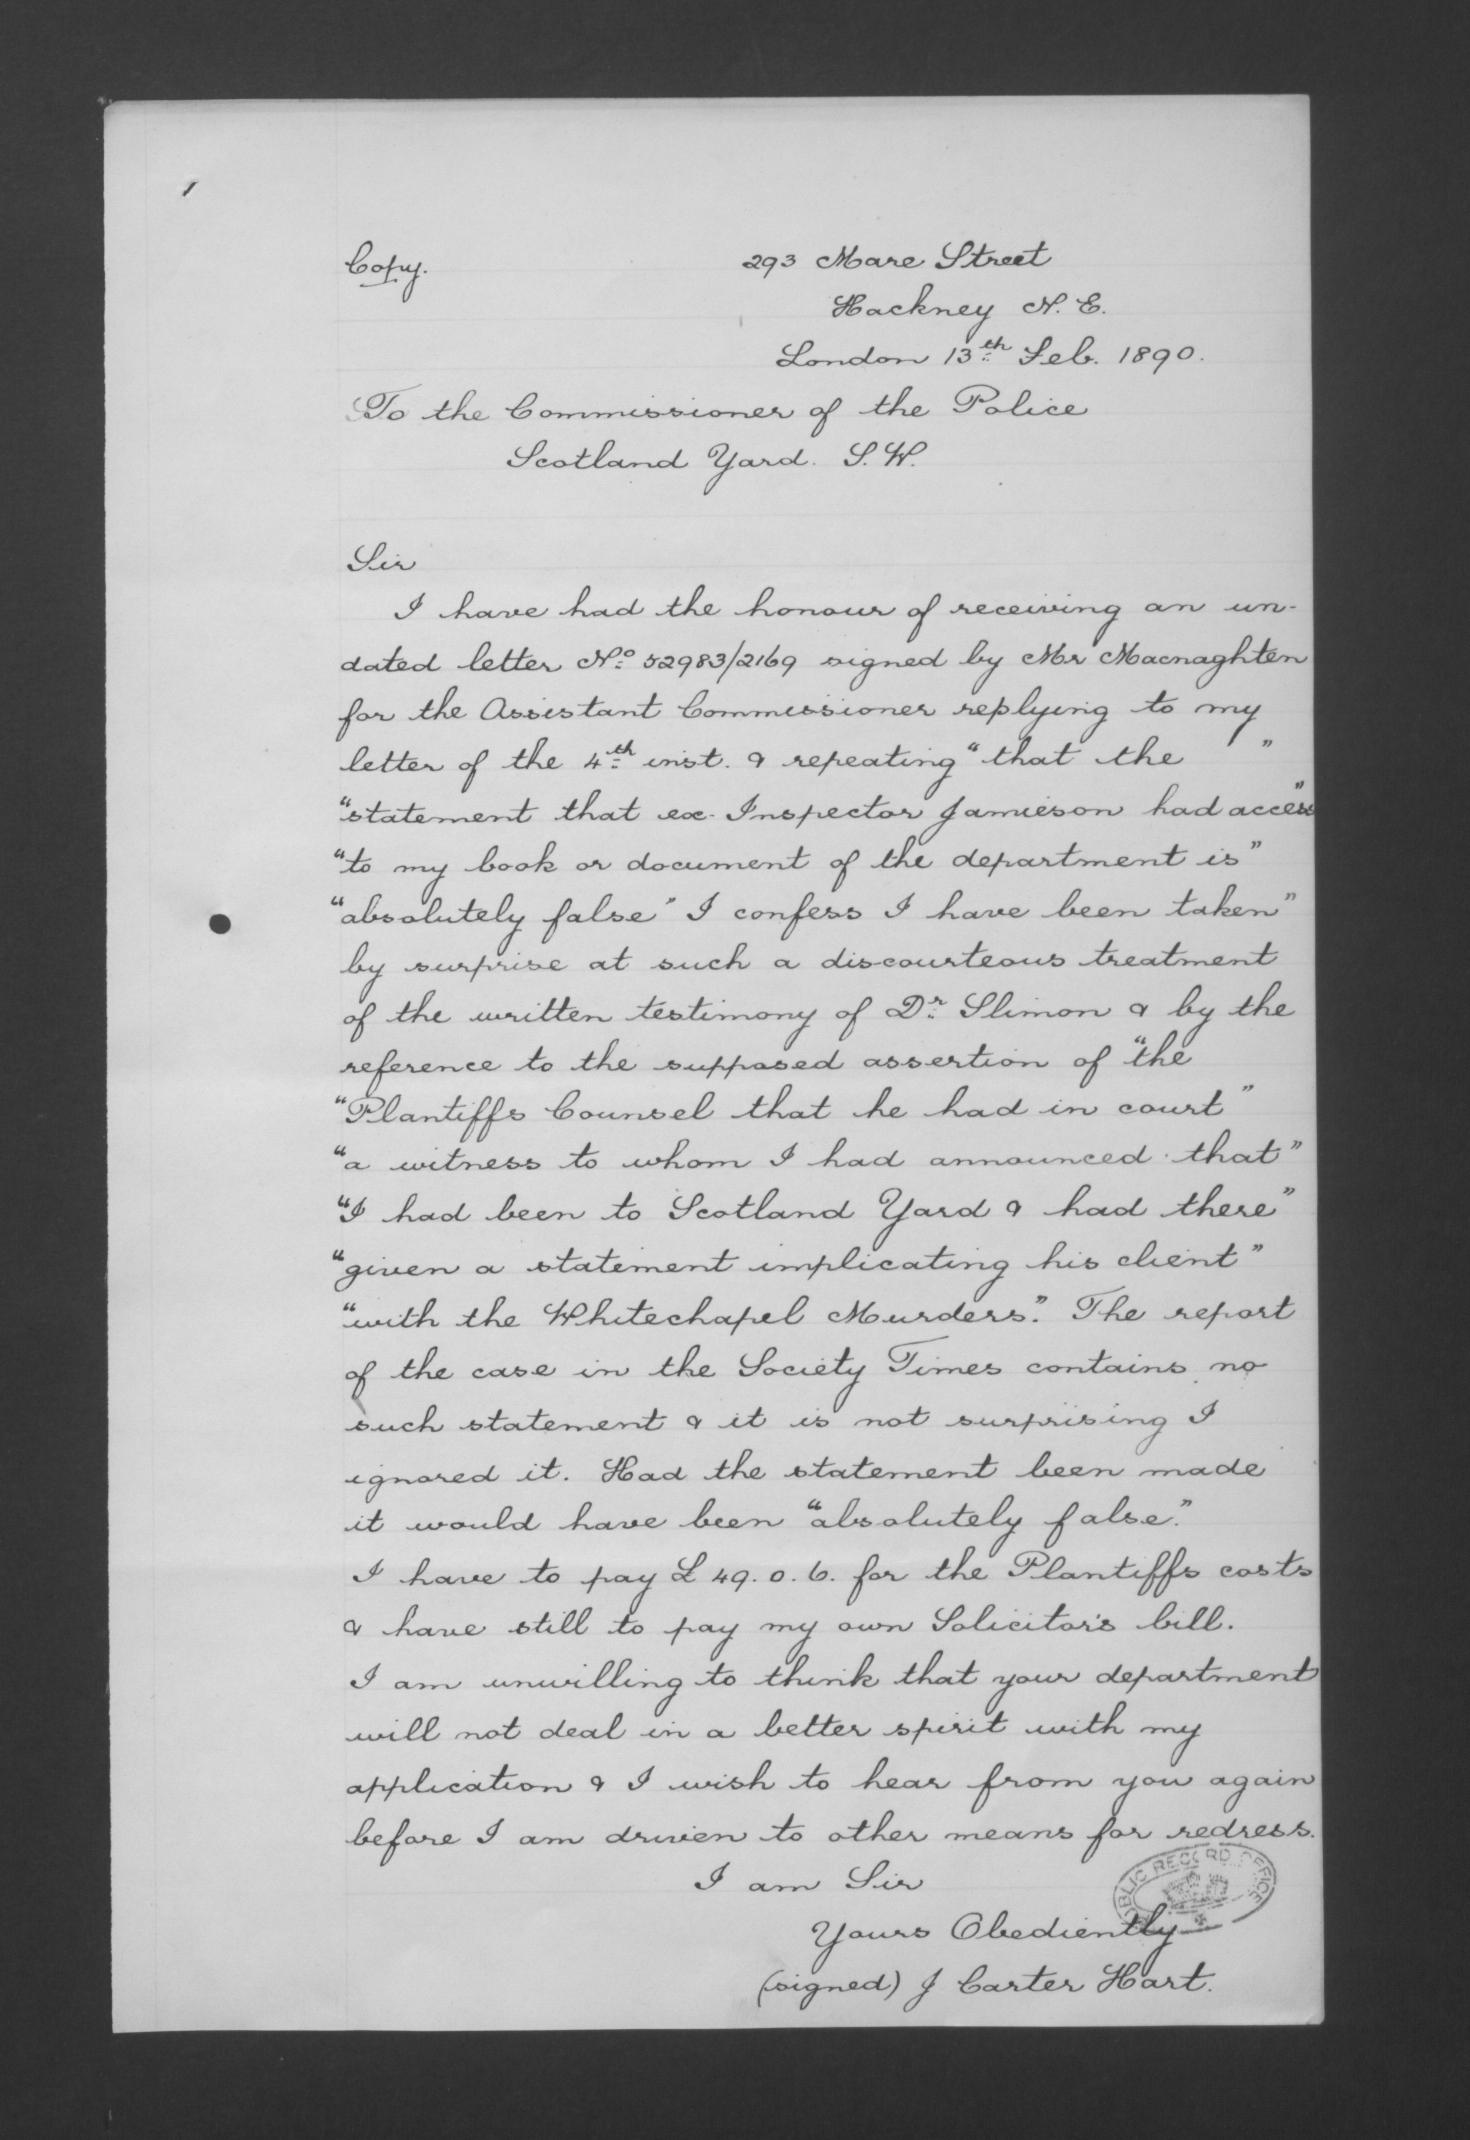 Copy.
293 Mare Street
Hackney N. E.
London 13th Feb. 1890.
To the Commissioner of the Police
Scotland Yard. S. W.
Sir
I have had the honour of receiving an un-
dated letter No. 52983/2169 signed by Mr Macnaghten
for the Assistant Commissioner replying to my
letter of the 4th inst. & repeating "that the "
"statement that ex-Inspector Jamieson had access"
"to my book or document of the department is"
"absolutely false" I confess I have been taken"
by surprise at such a discourteous treatment
of the written testimony of Dr. Slimon & by the
reference to the supposed assertion of "the
"Plantiffs Counsel that he had in court"
"a witness to whom I had announced that"
"I had been to Scotland Yard & had there"
"given a statement implicating his client"
"with the Whitechapel Murders". The report
of the case in the Society Times contains no
such statement & it is not surprising I
ignored it. Had the statement been made
it would have been "absolutely false."
I have to pay £49. 0. 6. for the Plantiffs costs
& have still to pay my own Solicitor's bill.
I am unwilling to think that your department
will not deal in a better spirit with my
application & I wish to hear from you again
before I am driven to other means for redress.
I am Sir
PUBLIC RECORD OFFICE
Yours Obediently
(signed) J Carter Hart.